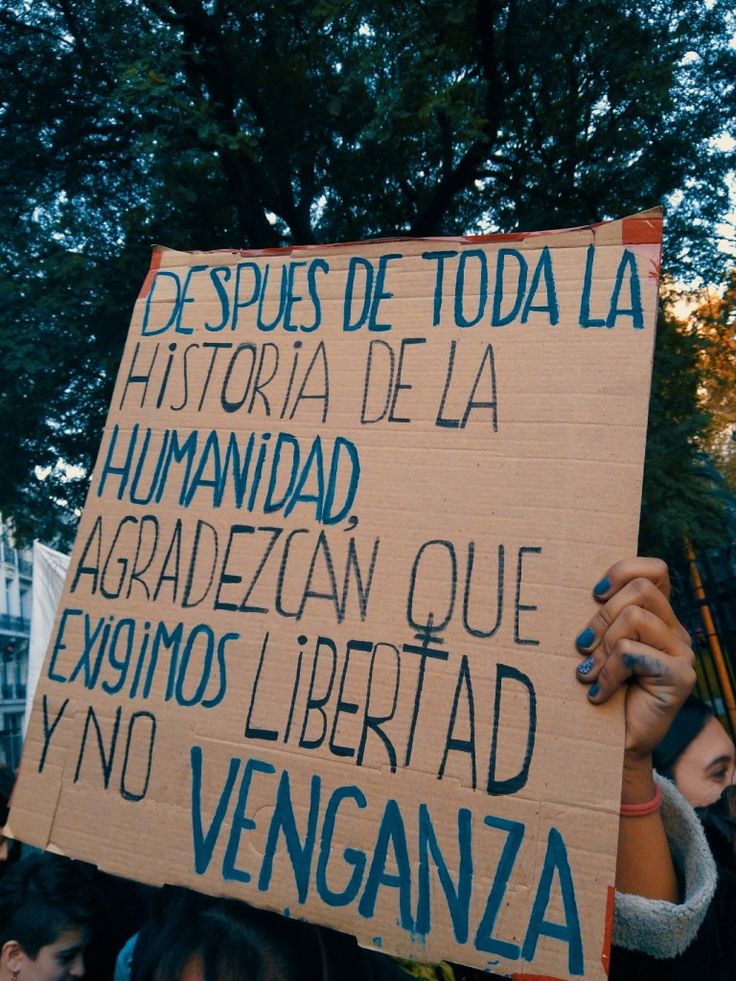 DESPUES DE TODA LA
HiSTORiA DE LA
HUMANiDAD,
AGRADEZCAN QUE
EXigiMOS LiBERTAD
Y NO VENGANZA